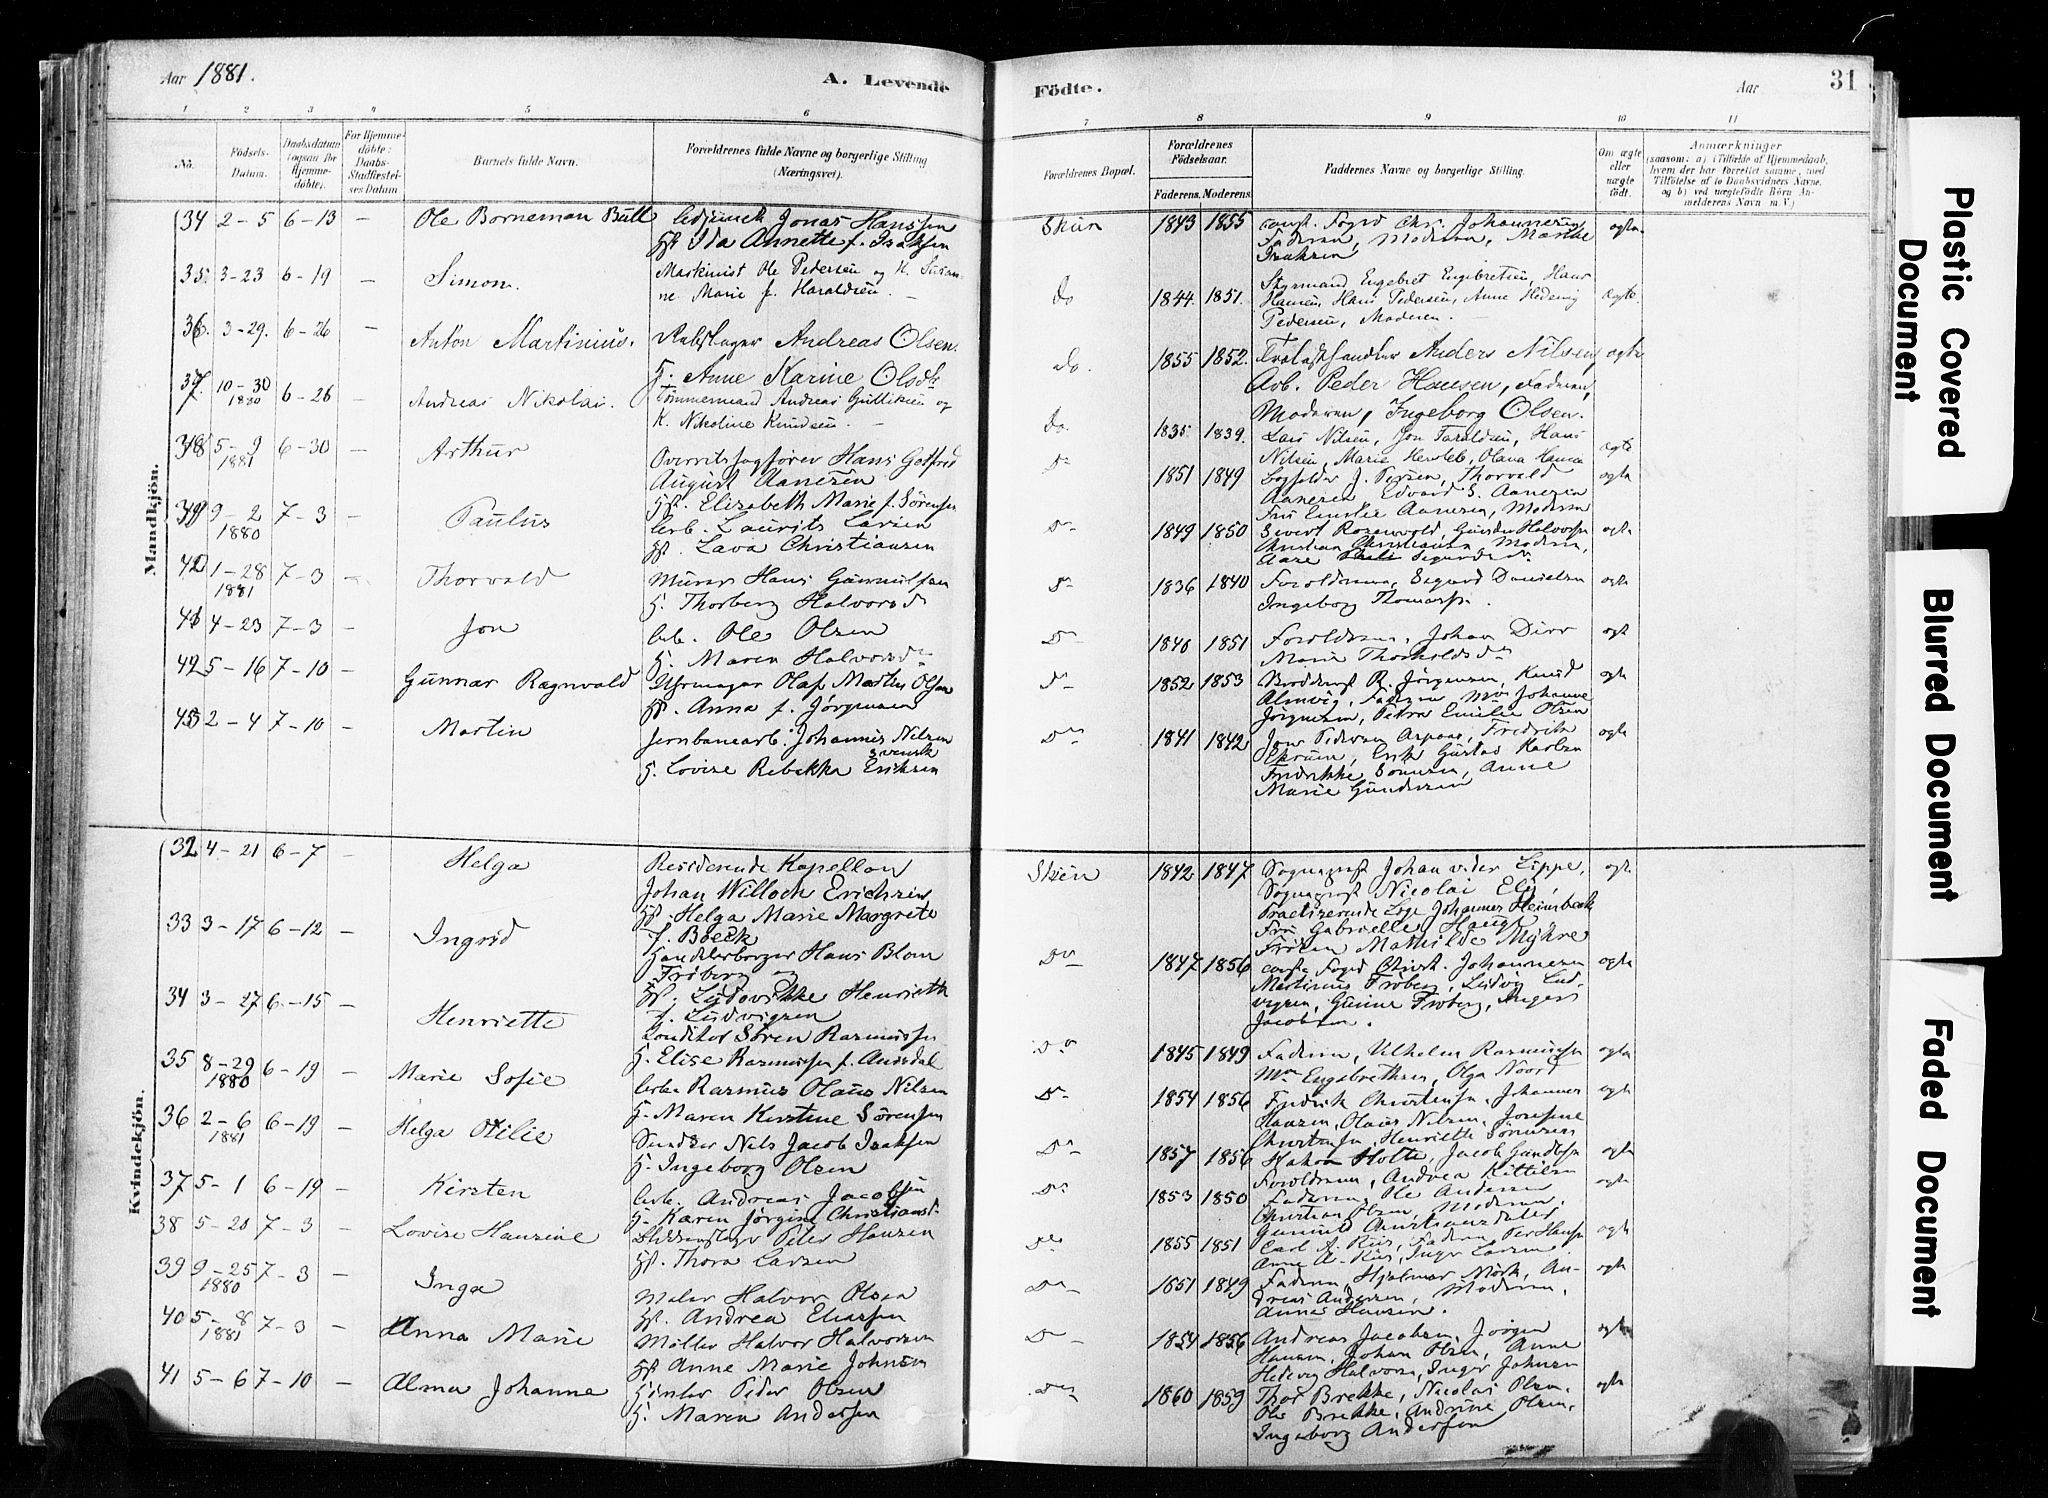 Aar 1881.
A. Levende
Födte.
Aar
31
1 2 3 4 5 6 7 8 9 10 11
No.
Födsels-Datum.
Daabsdatum (ogsaa for Hjemmedöbte).
For Hjemmedöbte: Daabs-Stadfæstelses Datum
Barnets fulde Navn.
Forældrenes fulde Navne og borgerlige Stilling (Næringsvei).
Forældrenes Bopæl.
Forældrenes Födselsaar.
Faderens. Moderens.
Faddernes Navne og borgerlige Stilling.
Om ægte eller uægte födt.
Anmærkninger
(saasom: a) i Tilfælde af Hjemmedaab, hvem der har forrettet samme, med Tilföielse af to Daabsvidners Navne, og b) ved uægtefödte Börn Anmelderens Navn m. V.)
Mandkjön.
34 2-5 6-13 — Ole Borneman Bull
Jonas Hanssen
Ida Annette f. Isaksen
Skien 1843 1855
const. Foged Chr. Johannesen
Faderen, Moderen,
Isaksen
ægte
35 3-23 6-19 — Simon.
Maskinist Ole Pedersen og H. Susan-
ne Marie f. Haraldsen.
Do 1844. 1851.
Styrmand Engebret Engebretsen, Hans
Hansen, Hans Pedersen, Anne Hedevig
Pedersen, Moderen.
ægte.
36. 3-29. 6-26 — Anton Martinius.
Rebslager Andreas Olsen.
H. Anne Karine Olsdtr
Do. 1855 1852.
Trælasthandler Anders Nilsen
Arb. Peder Hansen, Faderen,
Moderen, Ingeborg Olsen.
ægte
37. 10-30 1880 6-26 Andreas Nikolai.
Tømmermand Andreas Gulliksen og
K. Nikoline Knudsen.
Do. 1835 1839.
Lars Nilsen, Jon Taraldsen, Hans
Nilsen, Marie Hersleb, Olava Hansen
ægte
38 5-9 1881 6-30 — Arthur
Overretssagfører Hans Gotfred
August Aanesen
Hst. Elizabeth Marie f. Sørensen
Do 1851 1849
Bogholder J. Iversen, Thorvald
Aanesen Edvard S. Aanesen
Fru Emilie Aanesen, Moderen
ægte
39 9-2 1880 7-3 — Paulus
Arb. Laurits Larsen
Hst. Lava Christiansen
Do 1849 1850
Sivert Rosenvold, Gunder Halvorsen
Christian Christiansen Moderen,
Aase
ægte
40 1-28 1881 7-3 — Thorvald
Murer Hans Gunnulfsen
H. Thorberg Halvorsd
Do 1836 1840
Forældrene, Sigurd Danielsen
Ingeborg Thomassen.
ægte
41 4-23 7-3 — Jon
Arb. Ole Olsen
H. Maren Halvorsdr
Do 1840 1851
Forældrene, Johan Dirr
Marie Thorkildsdr
ægte
42 5-16 7-10 — Gunnar Ragnvald
Uhrmager Olaf Martin Olsen
Hst. Anna f. Jørgensen
Do 1852 1853
R. Jørgensen, Knud
Almvig, Faderen, Johanne
Jørgensen, Petra Emilie Olsen
ægte
43 2-4 7-10 — Martin
Jernbanearb. Johannes Nilsen
svensk
H. Lovise Rebekka Eriksen
Do 1841 1842
Jens Pedersen Aspaas, Fredrik
Ekrum, Erik Gustav Karlsen
Fredrikke Sørensen, Anne
Marie Gundersen
ægte
Kvindekjön.
32 4-21 6-7 — Helga
Residerende Kapellan
Johan Willoch Erichsen
Hst. Helga Marie Margrete
f. Boeck
Skien 1842 1847
Sognepræst Johan v. der Lippe,
Sognepræst Nicolai
Practiserende Læge Johannes Heimbeck
Fru Gabrielle Hauge
Frøken Mathilde Myhre
ægte
33 3-17 6-12 — Ingrid
Handelsborger Hans Blom
Frøberg og
Hst. Ludovikke Henriette
f. Ludvigsen
Do 1847 1856
const. Foged Christ. Johannesen
Martinius Frøberg, Ludvig Lud-
vigsen, Gunne Frøberg, Inger
Jacobsen.
ægte
34 3-27 6-15 — Henriette
Conditor Søren Rasmussen
H. Elise Rasmussen f. Aamdal
Do 1845 1849
Faderen, Vilhelm Rasmussen
Engebrethsen, Olga Noord
ægte
35 8-29 1880 6-19 — Marie Sofie
Arb. Rasmus Olaus Nilsen
H. Maren Kirstine Sørensen
Do 1854 1856
Fredrik Christensen, Johannes
Hansen, Olaus Nilsen, Josefine
Christensen, Henriette Sørensen
ægte
36 2-6 1881 6-19 — Helga Otilie
Snedker Nils Jacob Isaksen
H. Ingeborg Olsen
Do 1857 1856
Hakon Holte, Jacob Gundersen
Forældrene, Andrea Kittilsen
ægte
37 5-1 6-19 — Kirsten
Arb. Andreas Jacobsen
H. Karen Jørgine Christiansd.
Do 1853 1850
Faderen, Ole Andersen
Christian Olsen, Moderen,
Gunnild Christiansdatter
ægte
38 5-20 7-3 — Lovise Hansine
Peter Hansen
Hst. Thora Larsen
Do 1855 1851
Carl A. Riis, Faderen Per Hansen
Anne A. Riis, Inger Larsen
ægte
39 9-25 1880 7-3 — Inga
Maler Halvor Olsen
Hst. Andrea Eliassen
Do 1851 1849
Faderen, Hjalmar Mørk, An-
dreas Andersen, Moderen,
Anna Hansen.
ægte
40 5-8 1881 7-3 — Anna Marie
Møller Halvor Halvorsen
Hst Anne Marie Johnsen
Do 1854 1856
Andreas Jacobsen, Jørgen
Hansen, Johan Olsen, Anne
Hedevig Halvorsen, Inger Johnsen
ægte
41 5-6 7-10 — Alma Johanne
Peder Olsen
H. Maren Andersen
Do 1860 1859
Thor Brekke, Nicolai Olsen,
Ole Brekke, Andrine Olsen,
Ingeborg Andersen
ægte
Plastic Covered Document
Blurred Document
Faded Document